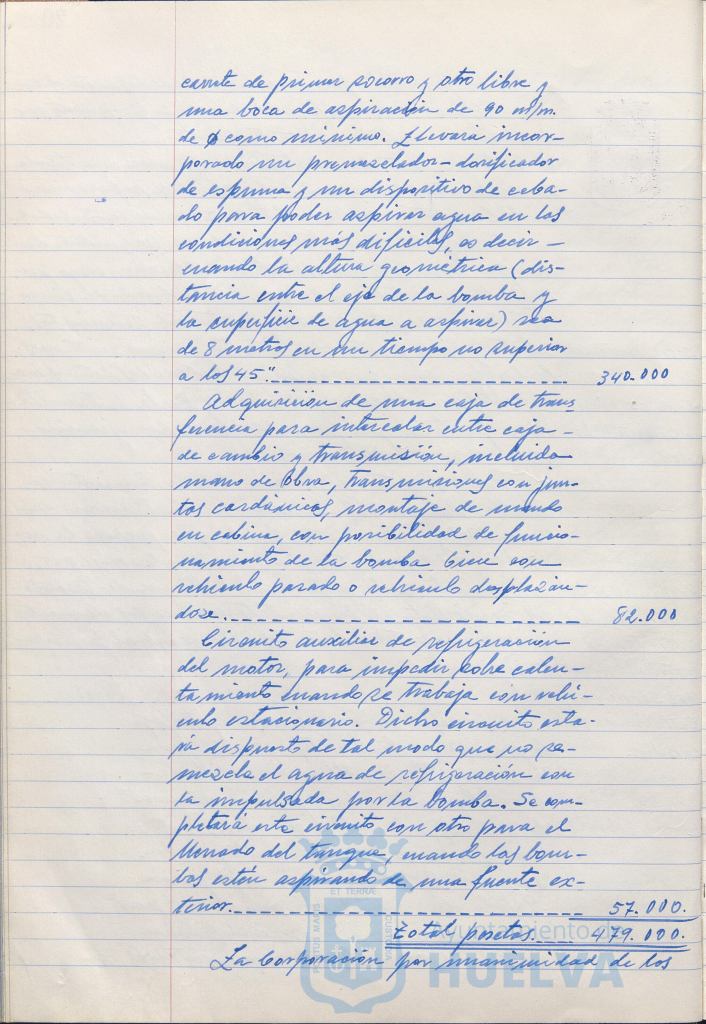 carrete de primer socorro y otro libre y
una boca de aspiración de 90 m/m.
de ø como mínimo. Llevará incor-
porado un premezclador-dosificador
de espuma y un dispositivo de ceba-
do para poder aspirar agua en las
condiciones más difíciles, es decir -
cuando la altura geométrica (dis-
tancia entre el eje de la bomba y
la superficie de agua a aspirar) sea
de 8 metros en un tiempo no superior
a los 45". 340.000
Adquisición de una caja de trans-
ferencia para intercalar entre caja -
de cambio y transmisión, incluida
mano de obra, transmisiones con jun-
tas cardánicas, montaje de mando
en cabina, con posibilidad de funcio-
namiento de la bomba bien con
vehículo parado o vehículo desplazán-
dose. 82.000
Circuito auxiliar de refrigeración
del motor, para impedir sobre calen-
tamiento cuando se trabaja con vehí-
culo estacionario. Dicho circuito esta-
rá dispuesto de tal modo que no se
mezcla el agua de refrigeración con
la impulsada por la bomba. Se com-
pletará este circuito con otro para el
llenado del tanque, cuando las bom-
bas estén aspirando de una fuente ex-
terior. 57.000.
Total pesetas 479.000.
La Corporación por unanimidad de los
PORTUS MARIS ET TERRAE CUSTODIA
Ayuntamiento de
HUELVA